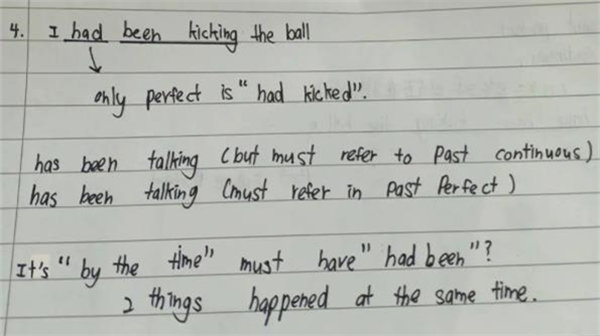 4. I had been kicking the ball
↓
only perfect is "had kicked".
has been talking (but must refer to past continuous)
has been talking (must refer in past Perfect)
It's "by the time" must have "had been"?
2 things happened at the same time.